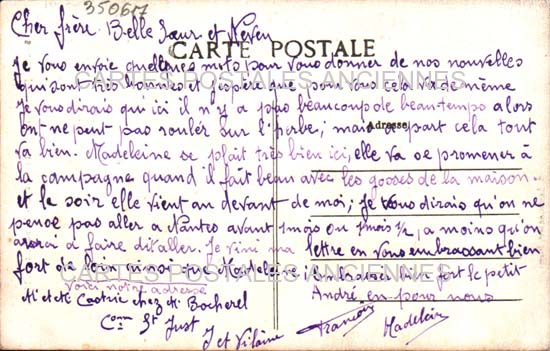 350617
Cher frère Belle Sœur et Neveu
CARTE POSTALE
Je vous envoie quelques mots pour vous donner de nos nouvelles
CARTES POSTALES ANCIENNES
qui sont très bonnes et j'espère que pour vous cela va de même
Je vous dirais qu'ici il n'y a pas beaucoup de beau temps alors
on ne peut pas rouler sur l'herbe; mais a part cela tout
Adresse
va bien. Madeleine se plait très bien ici, elle va se promener à
la campagne quand il fait beau avec les gosses de la maison..
et le soir elle vient au devant de moi; Je vous dirais qu'on ne
pense pas aller a Nantes avant 1 mois ou 1 mois 1/2, a moins qu'on
a faire d'y aller. Je fini ma lettre en vous embrassant bien
fort de loin ainsi que Madeleine. embrasser bien fort le petit
CARTES POSTALES ANCIENNES
André en pour nous
Voici notre adresse
Mr et Me chez Mr Bocherel
Cne St Just
I et Vilaine
François
Madeleine